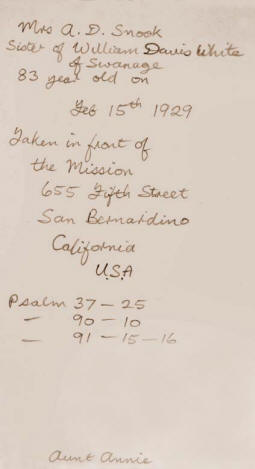 Mrs A. D. Snook
Sister of William Davis White
of Swanage
83 year old on
Feb 15th 1929
Taken in front of
the Mission
655 Fifth Street
San Bernardino
California
U.S.A
Psalm 37 - 25
- 90 - 10
- 91 - 15 - 16
Aunt Annie